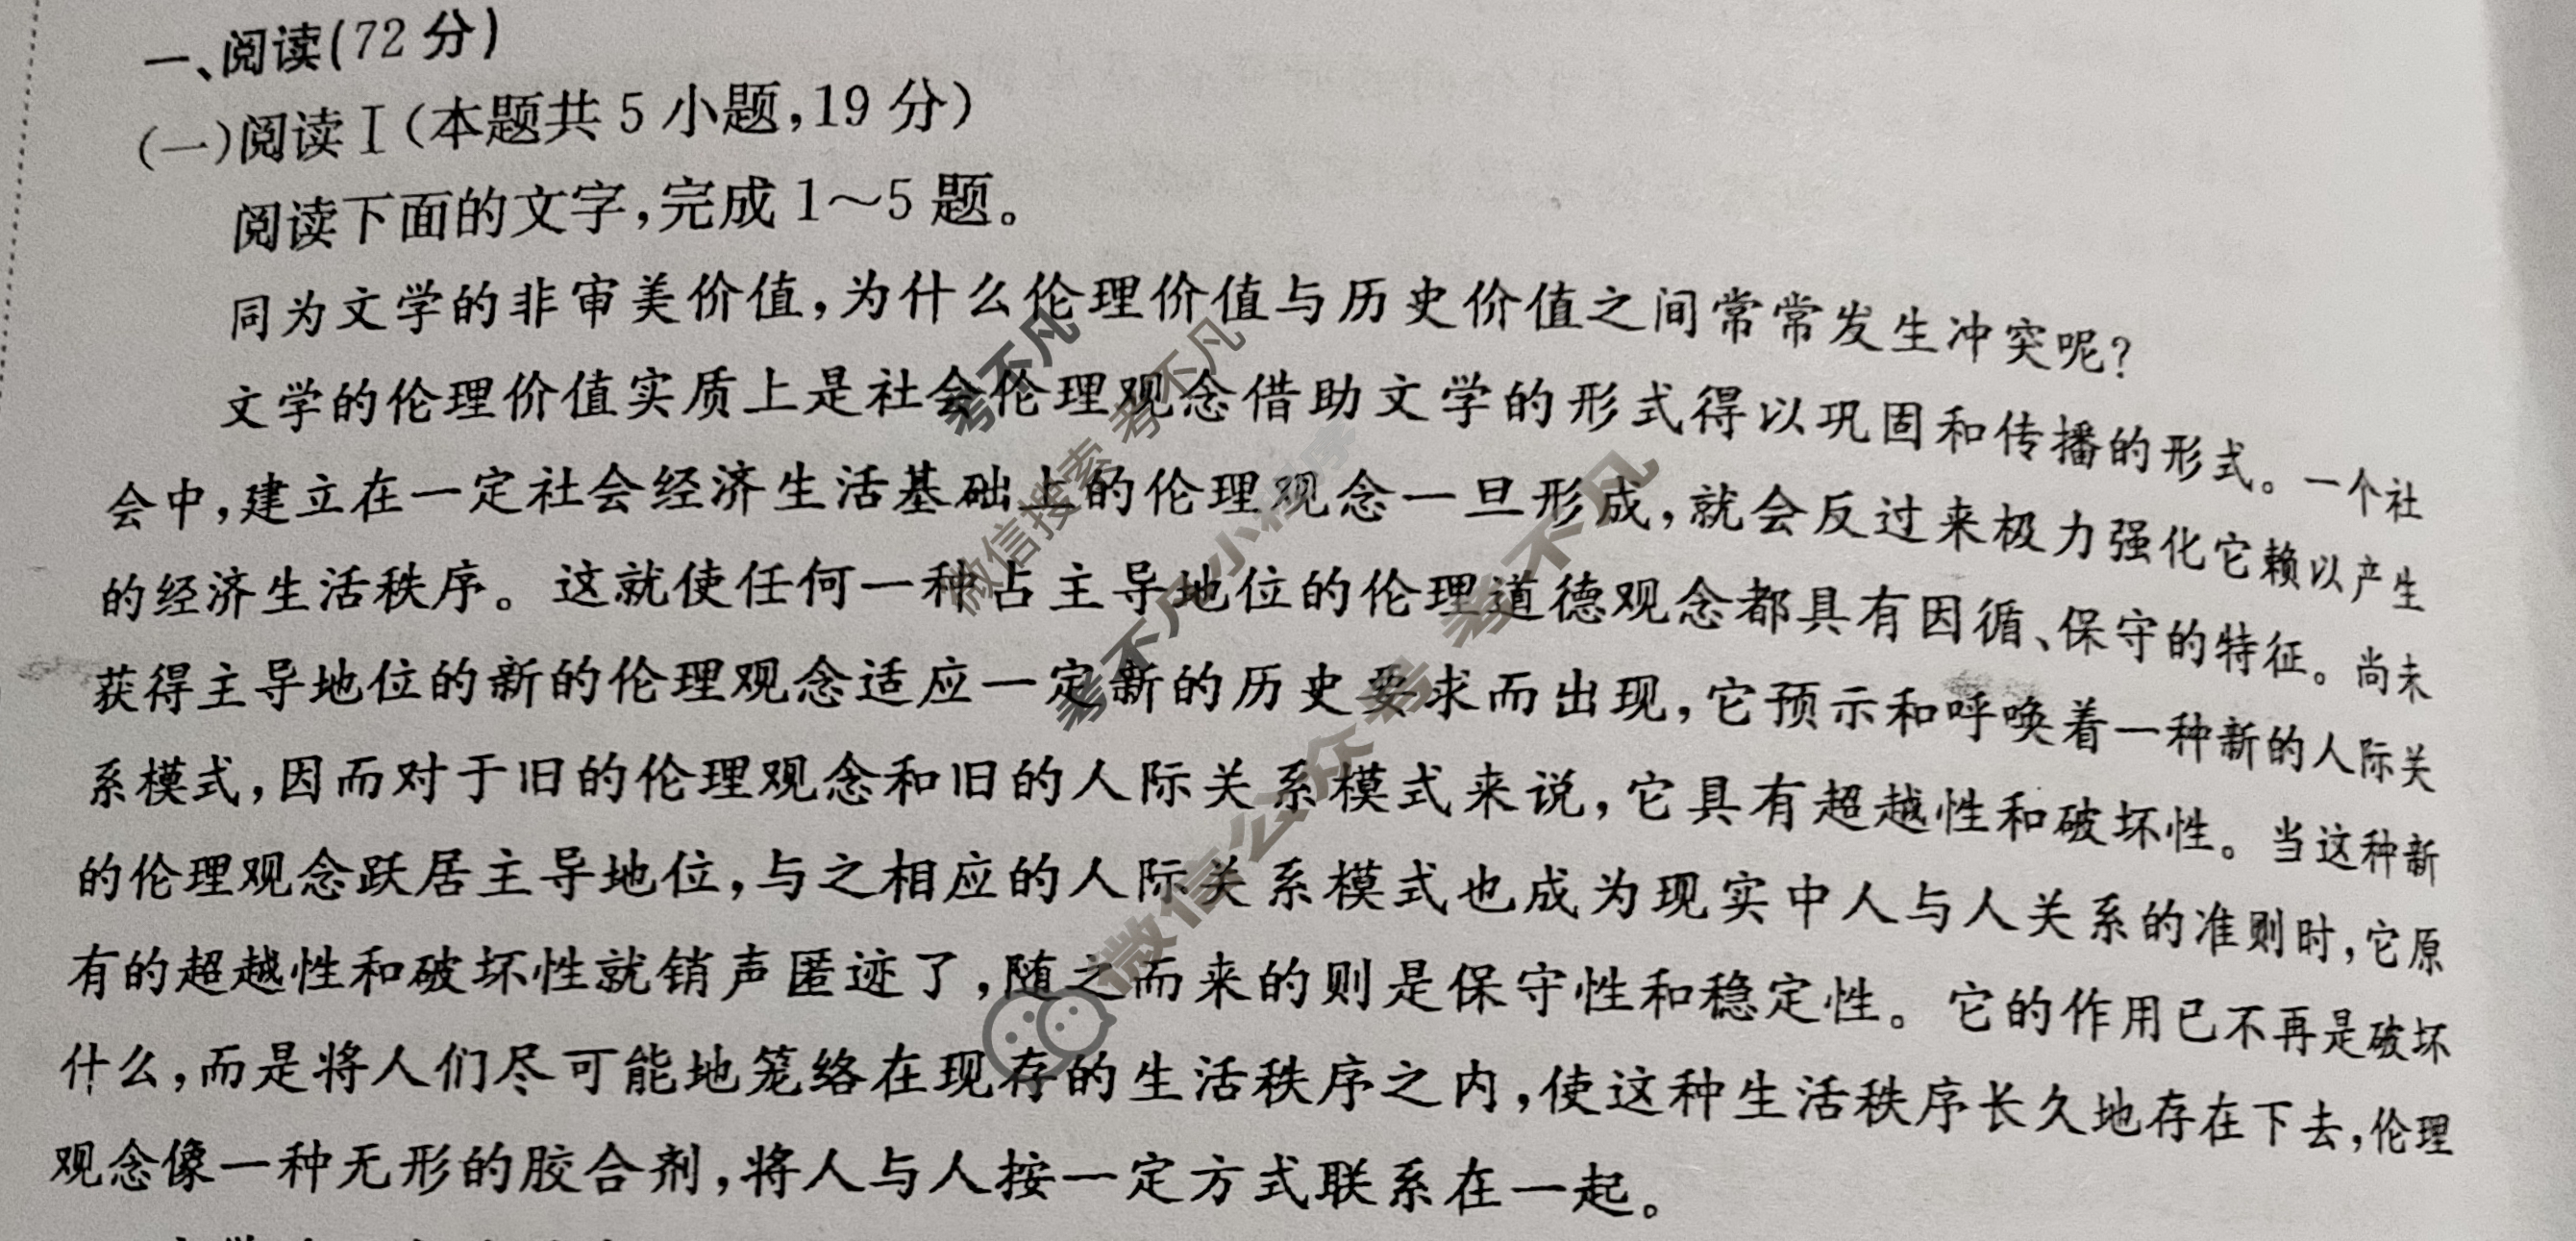 一、阅读(72分)
(一)阅读Ⅰ(本题共5小题,19分)
阅读下面的文字,完成1～5题。
同为文学的非审美价值,为什么伦理价值与历史价值之间常常发生冲突呢?
文学的伦理价值实质上是社会伦理观念借助文学的形式得以巩固和传播的形式。一个社
会中,建立在一定社会经济生活基础上的伦理观念一旦形成,就会反过来极力强化它赖以产生
的经济生活秩序。这就使任何一种占主导地位的伦理道德观念都具有因循、保守的特征。尚未
获得主导地位的新的伦理观念适应一定新的历史要求而出现,它预示和呼唤着一种新的人际关
系模式,因而对于旧的伦理观念和旧的人际关系模式来说,它具有超越性和破坏性。当这种新
的伦理观念跃居主导地位,与之相应的人际关系模式也成为现实中人与人关系的准则时,它原
有的超越性和破坏性就销声匿迹了,随之而来的则是保守性和稳定性。它的作用已不再是破坏
什么,而是将人们尽可能地笼络在现存的生活秩序之内,使这种生活秩序长久地存在下去,伦理
观念像一种无形的胶合剂,将人与人按一定方式联系在一起。
考不凡
微信搜索 考不凡
考不凡小程序
微信公众号 考不凡